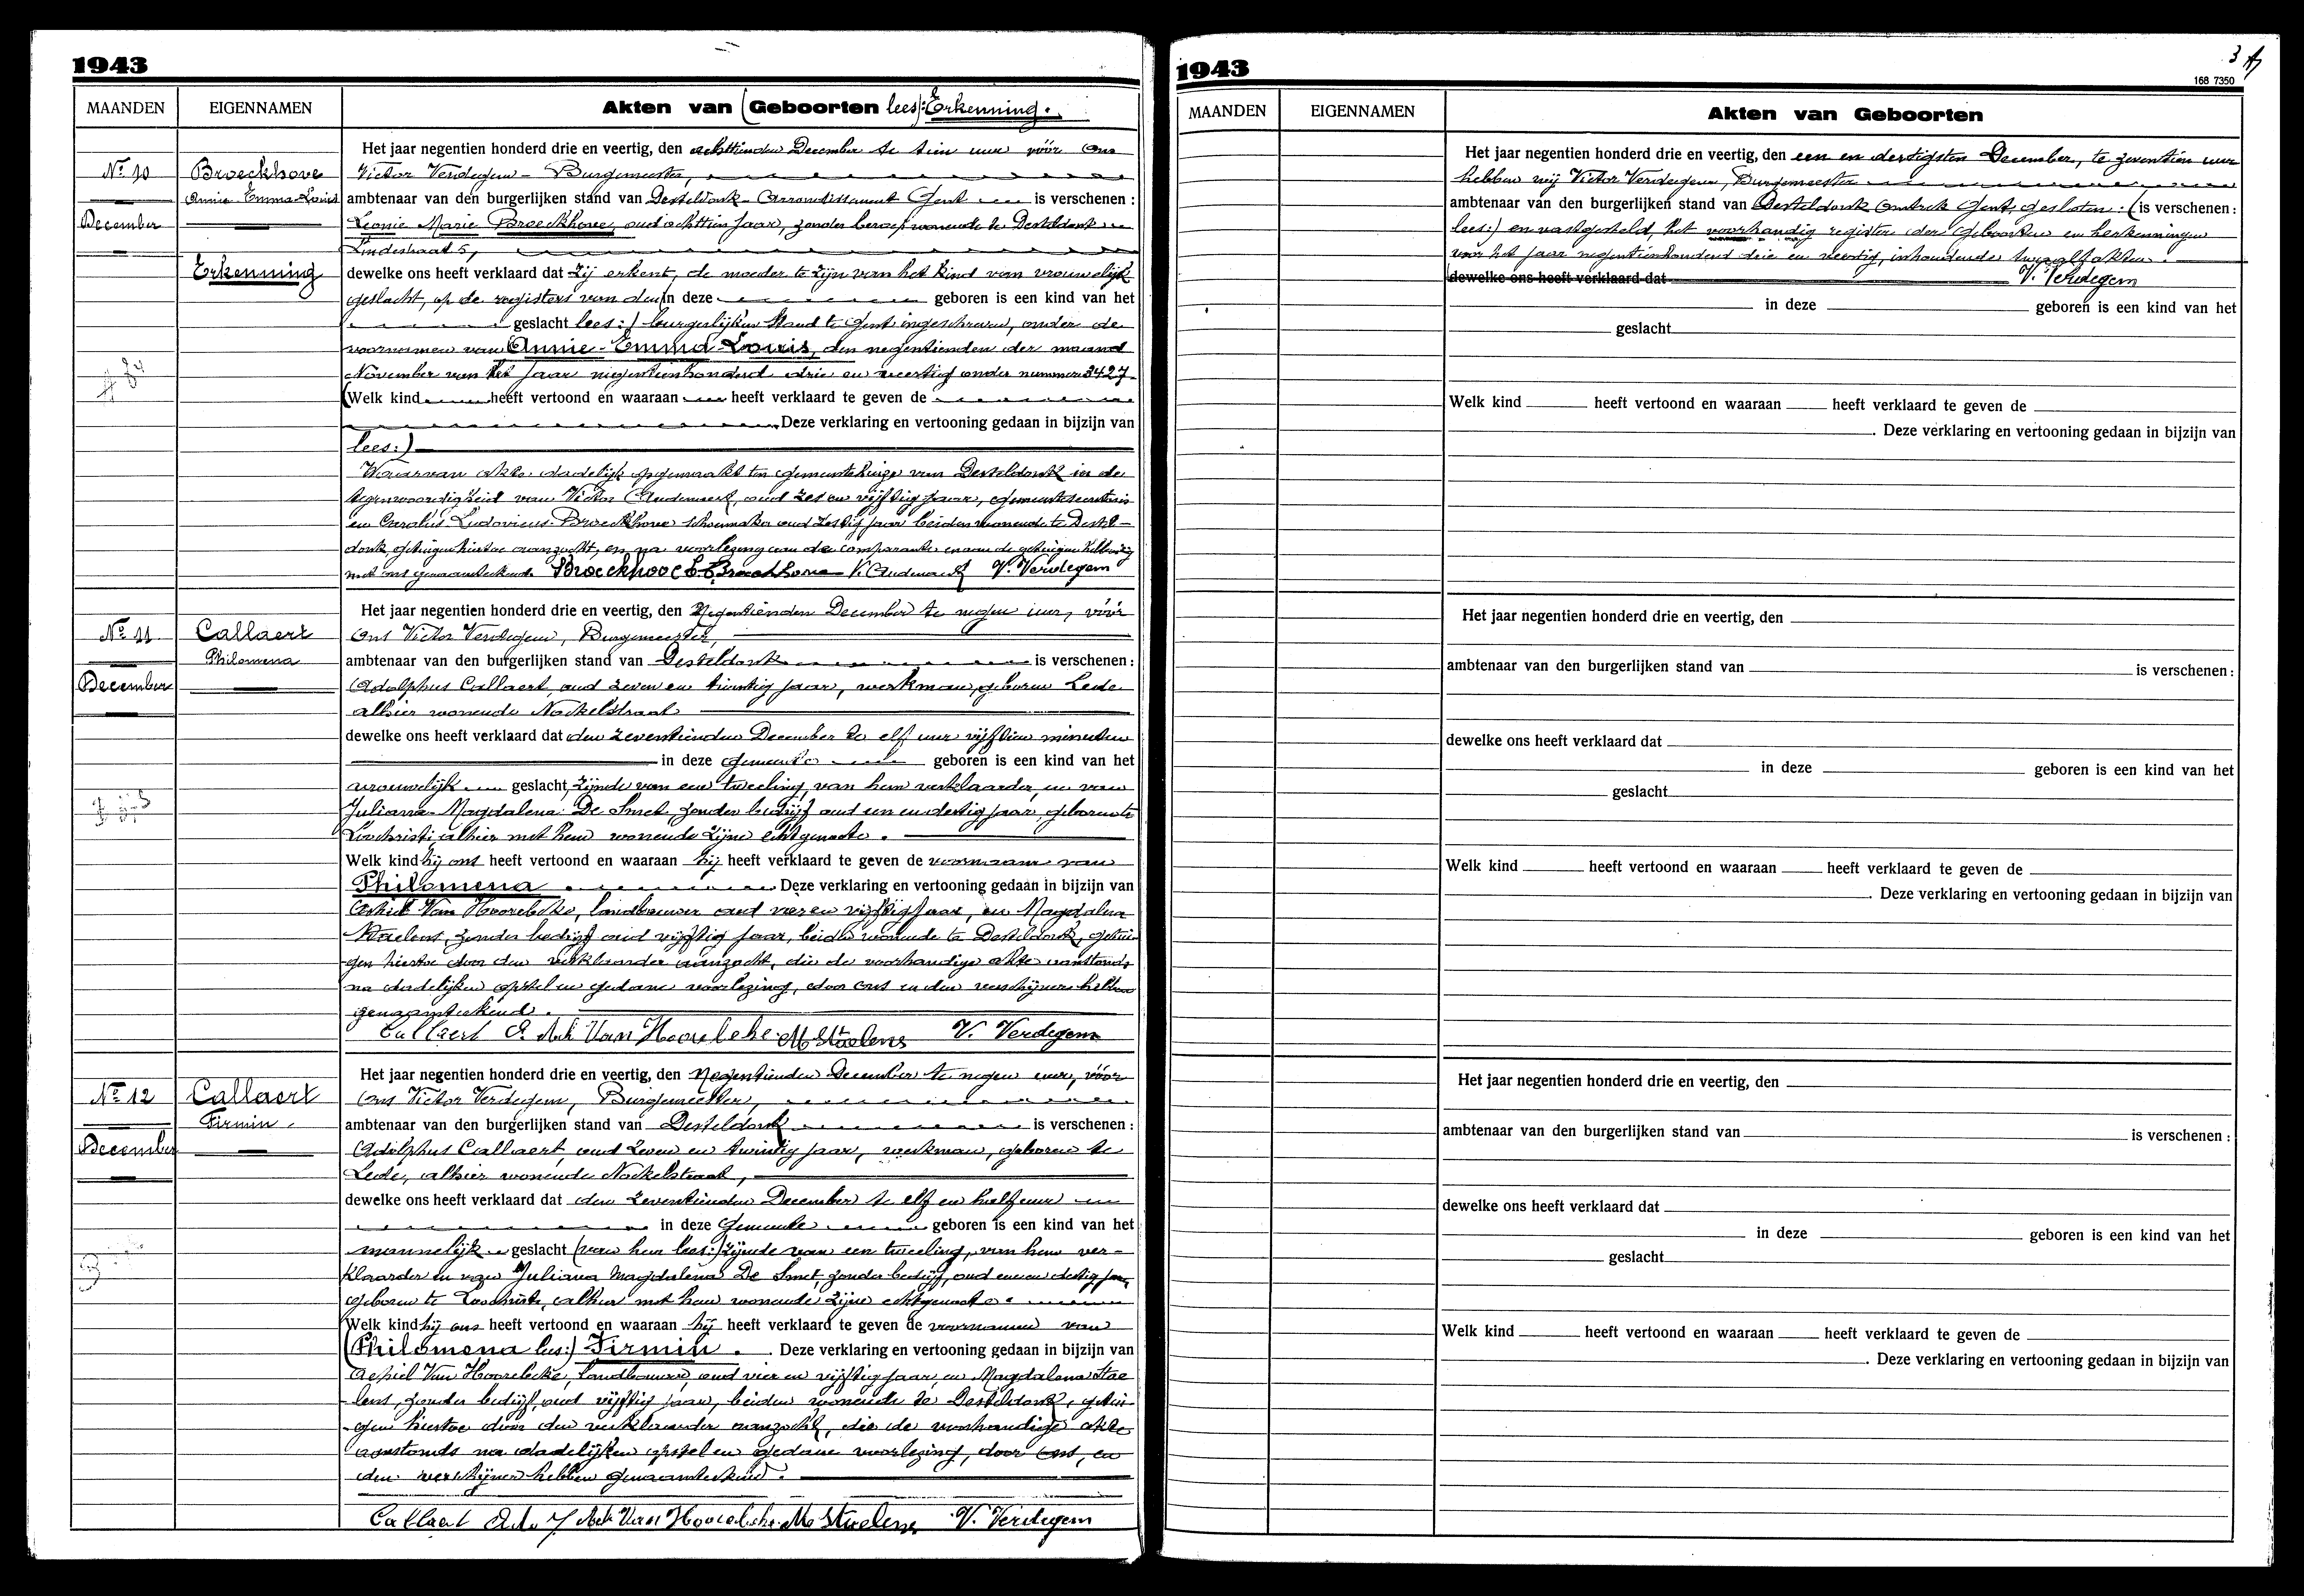 1943
MAANDEN EIGENNAMEN Akten van (Geboorten lees): Erkenning.
Het jaar negentien honderd drie en veertig, den achttienden December te tien uur vóór Ons
Nr 10 Broeckhove Victor Verdegem - Burgemeester,
Annie Emma Louis ambtenaar van den burgerlijken stand van Desteldonk Arrondissement Gent is verschenen :
December Leonie Marie Broeckhove, oud achttien jaar, zonder beroep wonende te Desteldonk
Lindestraat 5,
Erkenning dewelke ons heeft verklaard dat zij erkent, de moeder te zijn van het kind van vrouwelijk
geslacht, op de registers van den (in deze geboren is een kind van het
geslacht lees:) burgerlijken stand te Gent ingeschreven, onder de
voornamen van Annie-Emma-Louis, den negentienden der maand
November van het jaar negentienhonderd drie en veertig onder nummer 3427
(Welk kind heeft vertoond en waaraan heeft verklaard te geven de
Deze verklaring en vertooning gedaan in bijzijn van
lees:)
Waarvan akte dadelijk opgemaakt ten gemeentehuize van Desteldonk in de
tegenwoordigheid van Victor Audenaert, oud zes en vijftig jaar, gemeentesecretaris
en Carolus Ludovicus Broeckhove schoenmaker oud zestig jaar beiden wonende te Destel-
donk, getuigen hiertoe aanzocht, en na voorlezing aan de comparante en aan de getuigen hebben zij
met ons genaamteekend. Broeckhove L Broeckhove V. Audenaert V. Verdegem
Het jaar negentien honderd drie en veertig, den Negentienden December te negen uur, vóór
Nr 11 Callaert Ons Victor Verdegem, Burgemeester,
Philomena ambtenaar van den burgerlijken stand van Desteldonk is verschenen :
December Adolphus Callaert, oud zeven en twintig jaar, werkman, geboren Lede
alhier wonende Nockelstraat
dewelke ons heeft verklaard dat den zeventienden December te elf uur vijftien minuten
in deze gemeente geboren is een kind van het
vrouwelijk geslacht, zijnde van een tweeling, van hem verklaarder, en van
Juliana Magdalena De Smet, zonder bedrijf oud een en dertig jaar, geboren te
Loochristi, alhier met hem wonende zijne echtgenoote.
Welk kind hij ons heeft vertoond en waaraan hij heeft verklaard te geven de voornaam van
Philomena. Deze verklaring en vertooning gedaan in bijzijn van
Achiel Van Hoorebeke, landbouwer oud vier en vijftig jaar, en Magdalena
Staelens, zonder bedrijf oud vijftig jaar, beiden wonende te Desteldonk, getui-
gen hiertoe door den verklaarder aanzocht, die de voorhandige akte aanstonds
na dadelijken opstel en gedane voorlezing, door ons en den verschijner hebben
genaamteekend.
Callaert A. Ach Van Hoorebeke M Staelens V. Verdegem
Het jaar negentien honderd drie en veertig, den Negentienden December te negen uur, vóór
Nr 12 Callaert Ons Victor Verdegem, Burgemeester,
Firmin. ambtenaar van den burgerlijken stand van Desteldonk is verschenen :
December Adolphus Callaert, oud zeven en twintig jaar, werkman, geboren te
Lede, alhier wonende Nockelstraat,
dewelke ons heeft verklaard dat den zeventienden December te elf en half uur
in deze Gemeente geboren is een kind van het
mannelijk geslacht (van hem lees:) zijnde van een tweeling, van hem ver-
klaarder en van Juliana Magdalena De Smet, zonder bedrijf, oud een en dertig jaar,
geboren te Loochristi, alhier met hem wonende zijne echtgenoote.
Welk kind hij ons heeft vertoond en waaraan hij heeft verklaard te geven de voornamen van
(Philomena lees:) Firmin. Deze verklaring en vertooning gedaan in bijzijn van
Achiel Van Hoorebeke, landbouwer, oud vier en vijftig jaar, en Magdalena Stae
lens, zonder bedrijf, oud vijftig jaar, beiden wonende te Desteldonk, getui-
gen hiertoe door den verklaarder aanzocht, die de voorhandige akte
aanstonds na dadelijken opstel en gedane voorlezing, door ons, en
den verschijner hebben genaamteekend.
Callaert Ach Van Hoorebeke M Staelens V. Verdegem
1943
3
168 7350
MAANDEN EIGENNAMEN Akten van Geboorten
Het jaar negentien honderd drie en veertig, den een en dertigsten December, te zeventien uur
hebben wij Victor Verdegem, Burgemeester
ambtenaar van den burgerlijken stand van Desteldonk Omtrek Gent, gesloten: (is verschenen :
lees:) en vastgesteld, het voorhandig register der Geboorten en herkenningen
voor het jaar negentienhonderd drie en veertig, inhoudende twaalf akten.
dewelke ons heeft verklaard dat V. Verdegem
in deze geboren is een kind van het
geslacht
Welk kind heeft vertoond en waaraan heeft verklaard te geven de
. Deze verklaring en vertooning gedaan in bijzijn van
Het jaar negentien honderd drie en veertig, den
ambtenaar van den burgerlijken stand van is verschenen :
dewelke ons heeft verklaard dat
in deze geboren is een kind van het
geslacht
Welk kind heeft vertoond en waaraan heeft verklaard te geven de
. Deze verklaring en vertooning gedaan in bijzijn van
Het jaar negentien honderd drie en veertig, den
ambtenaar van den burgerlijken stand van is verschenen :
dewelke ons heeft verklaard dat
in deze geboren is een kind van het
geslacht
Welk kind heeft vertoond en waaraan heeft verklaard te geven de
. Deze verklaring en vertooning gedaan in bijzijn van